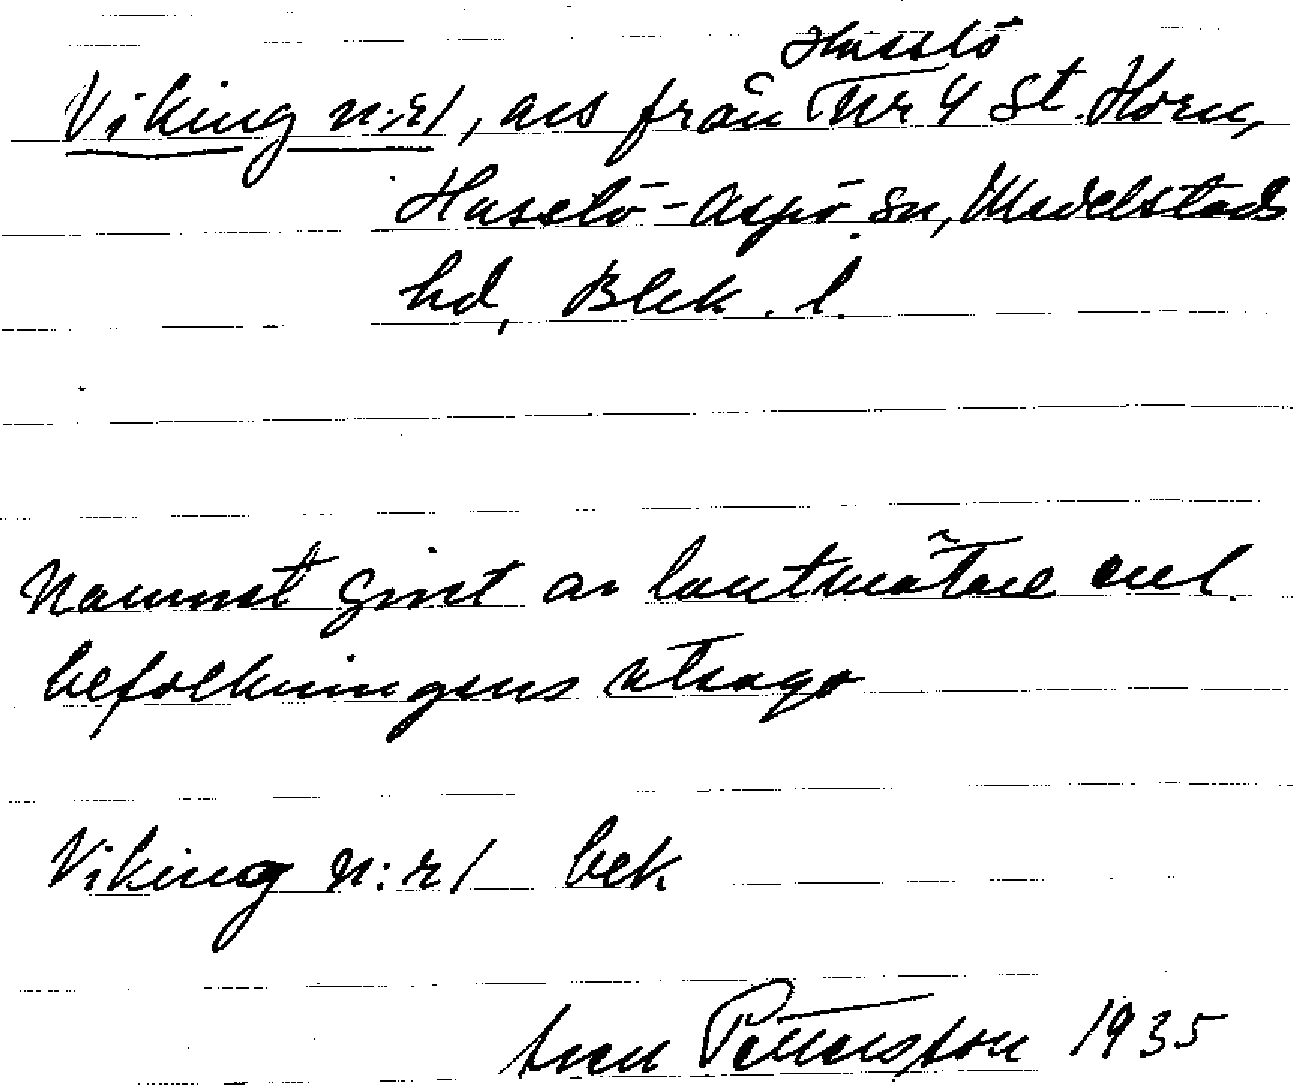 Hasslö
Viking n:r 1, avs från Nr 4 St. Horn,
Hasslö-Aspö sn, Medelstads
hd, Blek. l.
Namnet givet av lantmätare enl.
befolkningens utsago
Viking n:r 1 bek
Sven Pettersson 1935